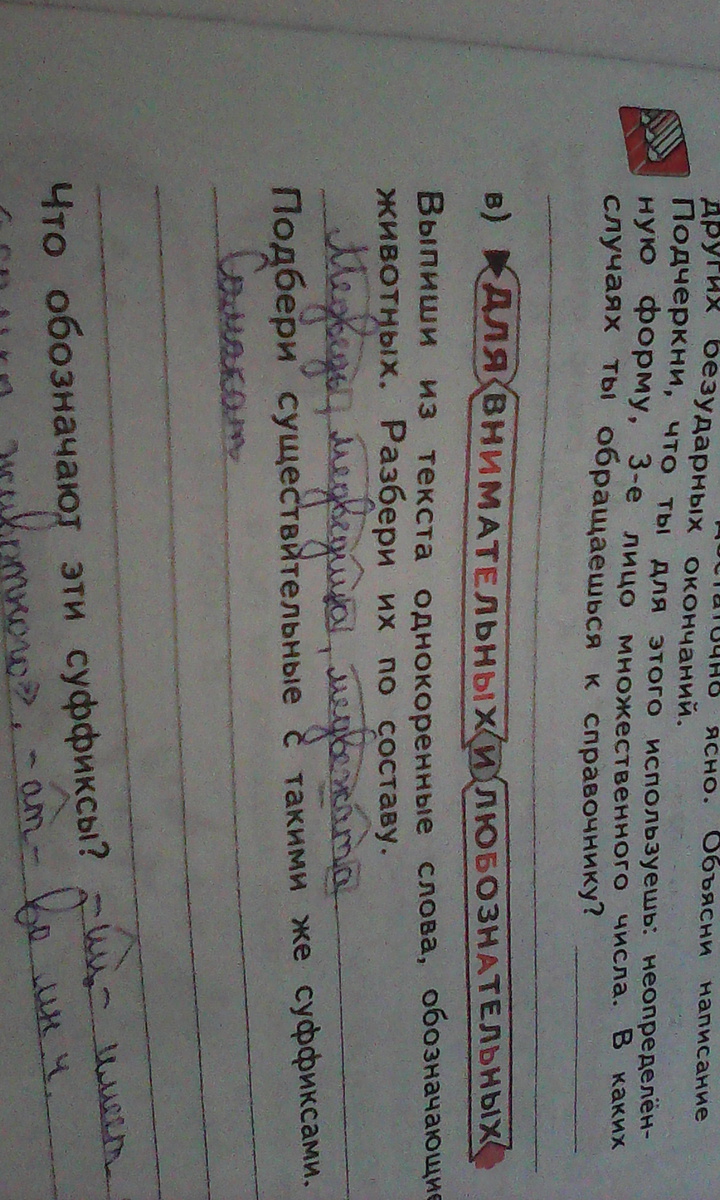 других безударных окончаний. ясно. Объясни написание
Подчеркни, что ты для этого используешь: неопределён-
ную форму, 3-е лицо множественного числа. В каких
случаях ты обращаешься к справочнику?
в) ▶ ДЛЯ ВНИМАТЕЛЬНЫХ И ЛЮБОЗНАТЕЛЬНЫХ
Выпиши из текста однокоренные слова, обозначающие
животных. Разбери их по составу.
Медведь, медведица, медвежата
Подбери существительные с такими же суффиксами.
Что обозначают эти суффиксы? -иц- имеет
животного», -ат- во мн ч.